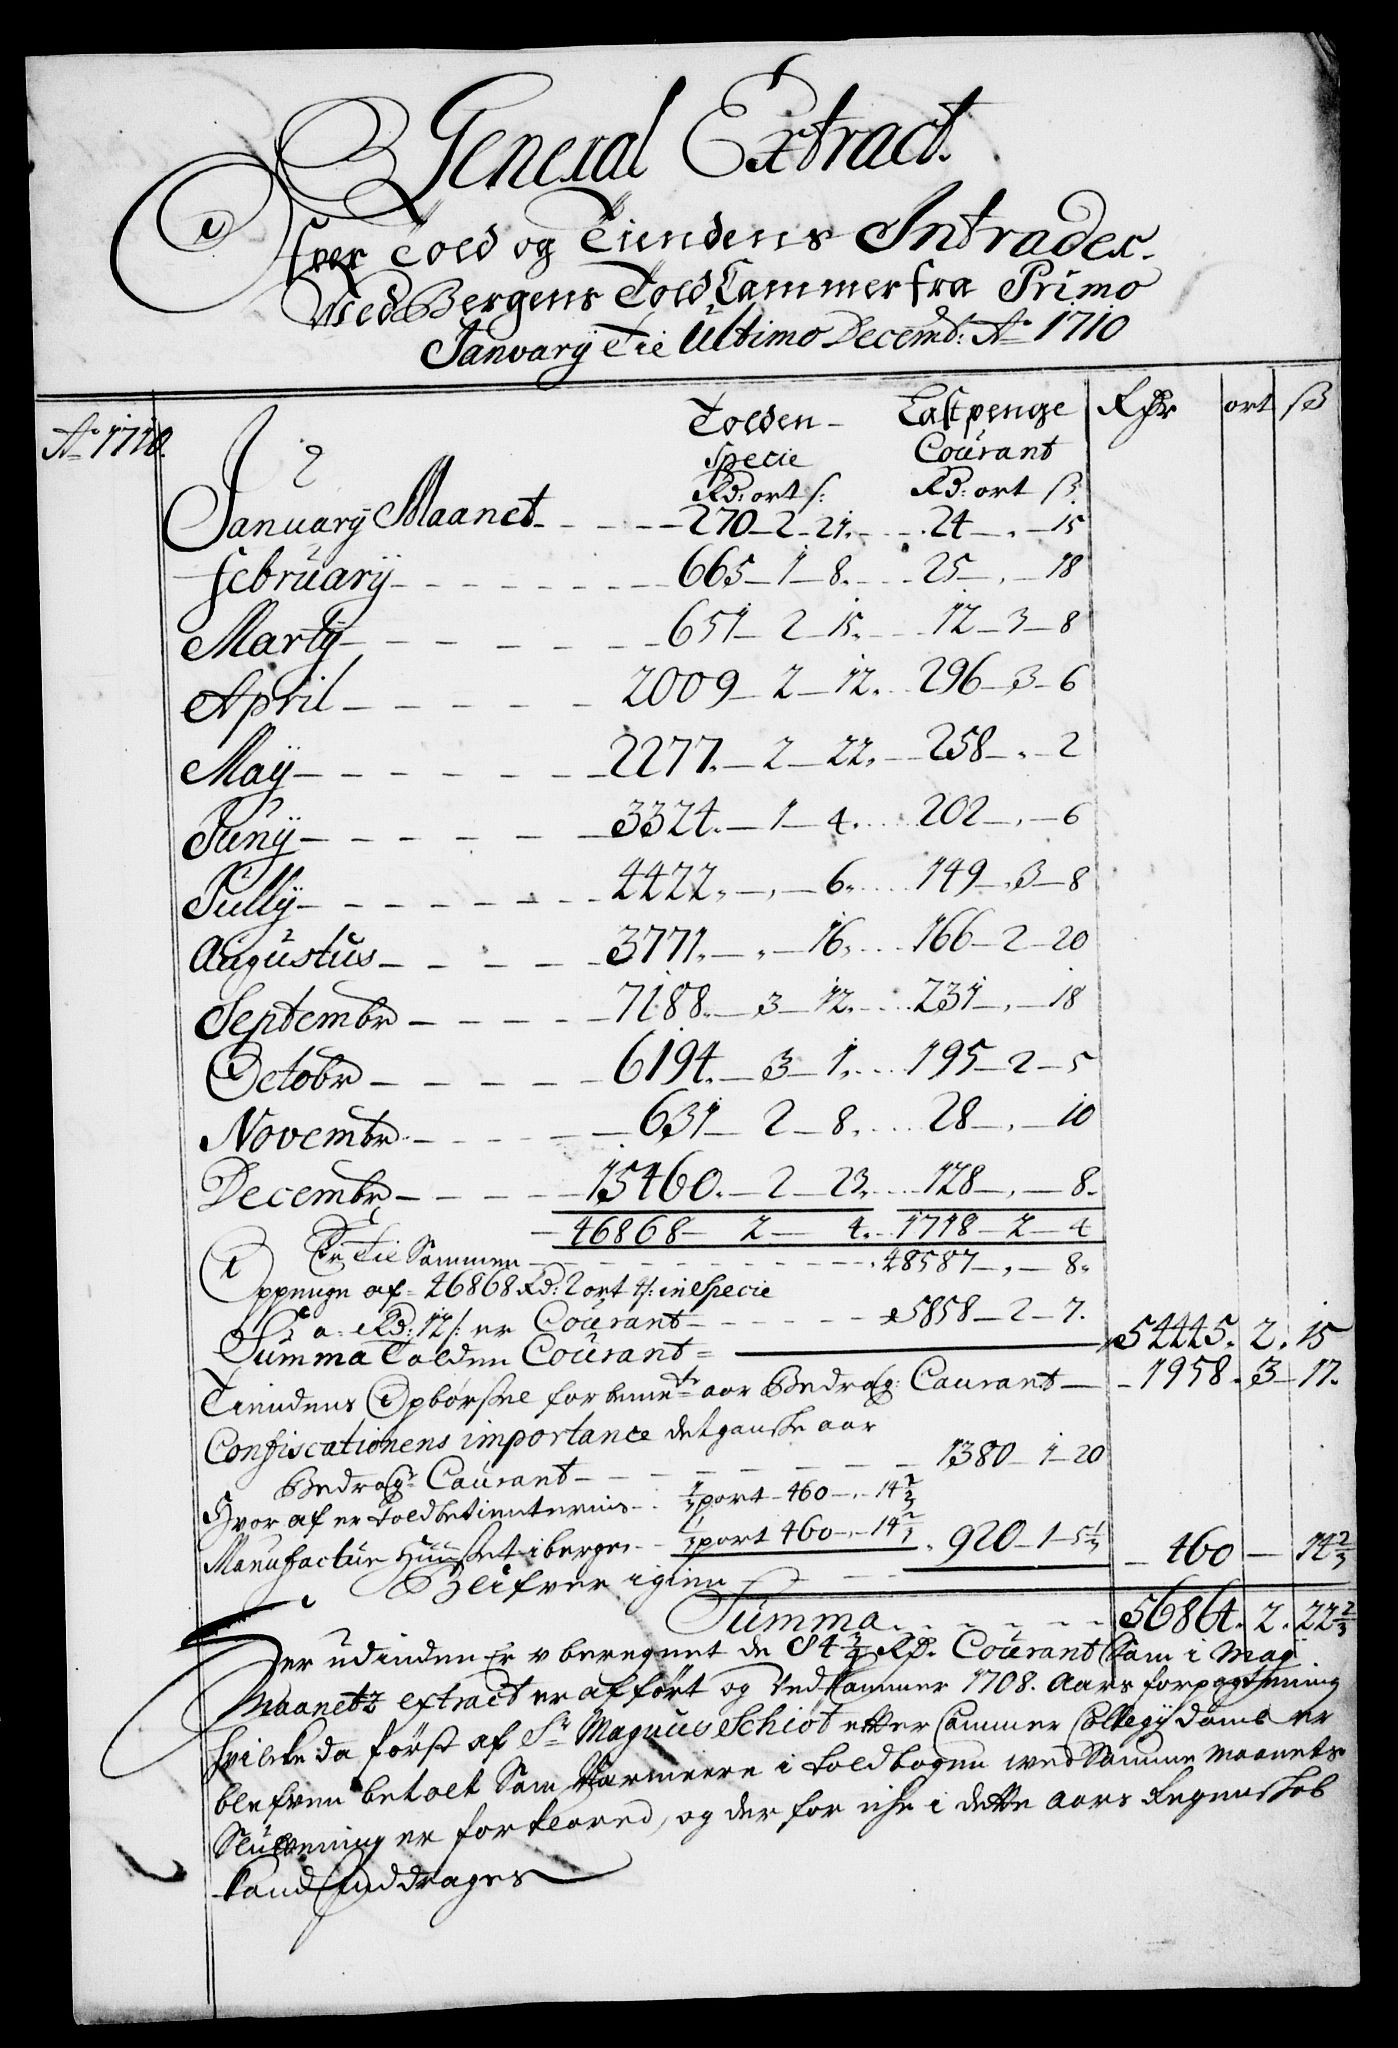 General Extract.
Ofver Told og Tiendens Intrader.
Wed Bergens Told Cammer fra Primo
Januarij til Ultimo Decemb: Ao 1710
Rdr ort ß
Ao 1710.
Tolden Lastpenge
Specie Courant
Rd: ort s: Rd: ort ß
January Maanet 270 2 21. 24 . 15
February 665 1 8. 25 . 18
Martij 651 2 15. 12 3 8
April 2009 2 12. 296 3 6
Maij 2277. 2 22. 258 . 2
Junij 3324. 1 4. 202 . 6
Jullij 4422. . 6. 149 3 8
Augustus 3771. . 16. 166 2 20
Septembr 7188. 3 12. 231 . 18
Octobr 6194. 3 1. 195 2 5
Novembr 631 2 8. 28 . 10
Decembr 15460. 2 23. 128 . 8.
46868 2 4. 1718 2 4
Er til Sammen 48587 . 8.
Oppenge af 46868 Rd: 2 ort 4 s: in Specie
a Rd: 12 s: er Courant 5858 2 7.
Summa Tolden Courant 54445. 2. 15
Tiendens Opbørsel for bemte aar Bedrag: Courant 1958. 3 17.
Confiscationens importance det ganske aar
Bedragr Courant 1380 1 20
Hvor af er Toldbetienternis 1/3 port 460 . 14 2/3
Manufactur Huuset i bergen 1/3 port 460 . 14 2/3 . 920 1 5 1/3
Blifver igien 460 14 2/3
Summa 56864. 2. 22 2/3
Her udinden Er v beregnet de 84 3/4 Rd. Courant Som i Maij
Maanetz extract er afført og ved Cammer 1708. Aars forpagtning
hvilcke da først af Sr Magnus Schiøt efter Cammer Collegij domb er
blefven betalt Som Narmeere i toldbogen ved Samme Maanets
Slutning er forklared, og der for icke i dette Aars Regenskab
kand Inddrages